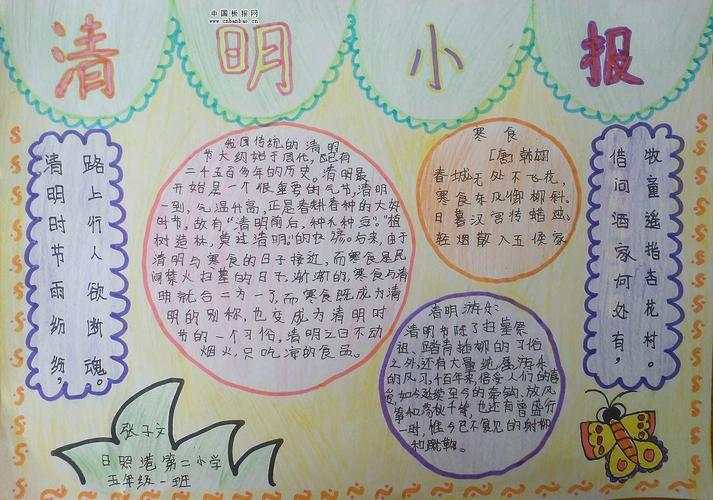 中国板报网
www.cnbanbao.cn
清明小报
路上行人欲断魂。
清明时节雨纷纷,
我国传统的清明
节大约始于周代,已有
二千五百多年的历史。清明最
开始是一个很重要的节气,清明
一到,气温升高,正是春耕春种的大好
时节,故有“清明前后,种瓜种豆”。“植
树造林,莫过清明。”的
后来,由于
清明与寒食的日子接近,而寒食是民
间禁火扫墓的日子,渐渐的,寒食与清
明就合二为一了,而寒食既成为清
明的别称,也变成为清明时
节的一个习俗,清明之日不动
烟火,只吃凉的食品。
寒食
[唐]韩翃
春城无处不飞花,
寒食东风御柳斜。
日暮汉宫传蜡烛,
轻烟散入五侯家
牧童遥指杏花村。
借问酒家何处有,
清明
清明节除了扫墓祭
祖、踏青插柳的习俗
之外,还有大量
的风习,千百年来,倍受人们的喜
爱,如今
至今的牵钩、放风
筝和荡秋千等,也还有曾盛行
一时,惟今已不复见的射柳
和蹴鞠。
张子文
日照港第二小学
五年级一班